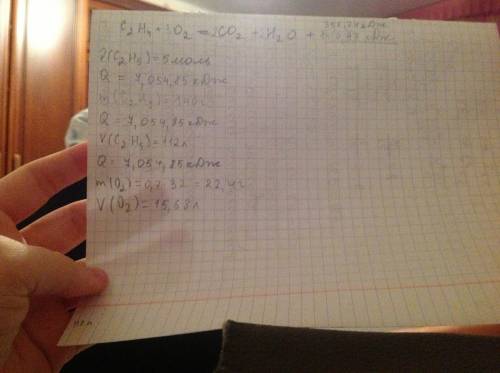 C₂H₄ + 3O₂ = 2CO₂ + 2H₂O + кДж
ν(C₂H₄) = 5 моль
Q = 7,054,85 кДж
m(C₂H₄) = 140 г
Q = 7,054,85 кДж
V(C₂H₄) = 112 л
Q = 7,054,85 кДж
m(O₂) = 0,7·32 = 22,4 г
V(O₂) = 15,68 л